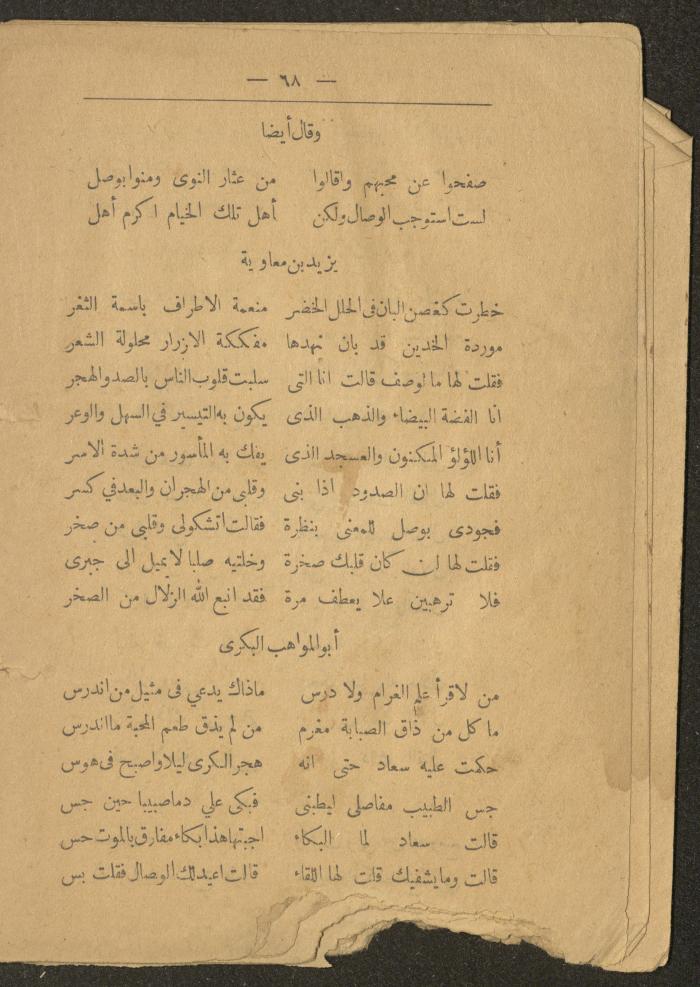 — ٦٨ —
وقال أيضا
صفحوا عن محبهم واقالوا من عثار النوى ومنوا بوصل
لست استوجب الوصال ولكن أهل تلك الخيام اكرم أهل
يزيد بن معاوية
خطرت كغصن البان فى الحلل الخضر منعمة الاطراف باسمة الثغر
موردة الخدين قد بان نهدها مفككة الازرار محلولة الشعر
فقلت لها ما لوصف قالت انا التى سلبت قلوب الناس بالصد والهجر
انا الفضة البيضاء والذهب الذى يكون به التيسير في السهل والوعر
أنا اللؤلؤ المكنون والعسجد الذى يفك به المأسور من شدة الاسر
فقلت لها ان الصدود اذا بنى وقلبى من الهجران والبعد في كسر
فجودى بوصل للمعنى بنظرة فقالت اتشكولى وقلبى من صخر
فقلت لها لئن كان قلبك صخرة وخلتيه صلبا لا يميل الى جبرى
فلا ترهبين علا يعطف مرة فقد انبع الله الزلال من الصخر
أبو المواهب البكرى
من لا قرأ علم الغرام ولا درس ماذاك يدعي فى مثيل من اندرس
ما كل من ذاق الصبابة مغرم من لم يذق طعم المحبة ما اندرس
حكمت عليه سعاد حتى انه هجر الكرى ليلا واصبح فى هوس
جس الطبيب مفاصلى ليطبنى فبكى علي دماصبيبا حين جس
قالت سعاد لما البكاء اجبتها هذا بكاء مفارق بالموت حس
قالت وما يشفيك قلت لها اللقاء قالت اعيد لك الوصال فقلت بس